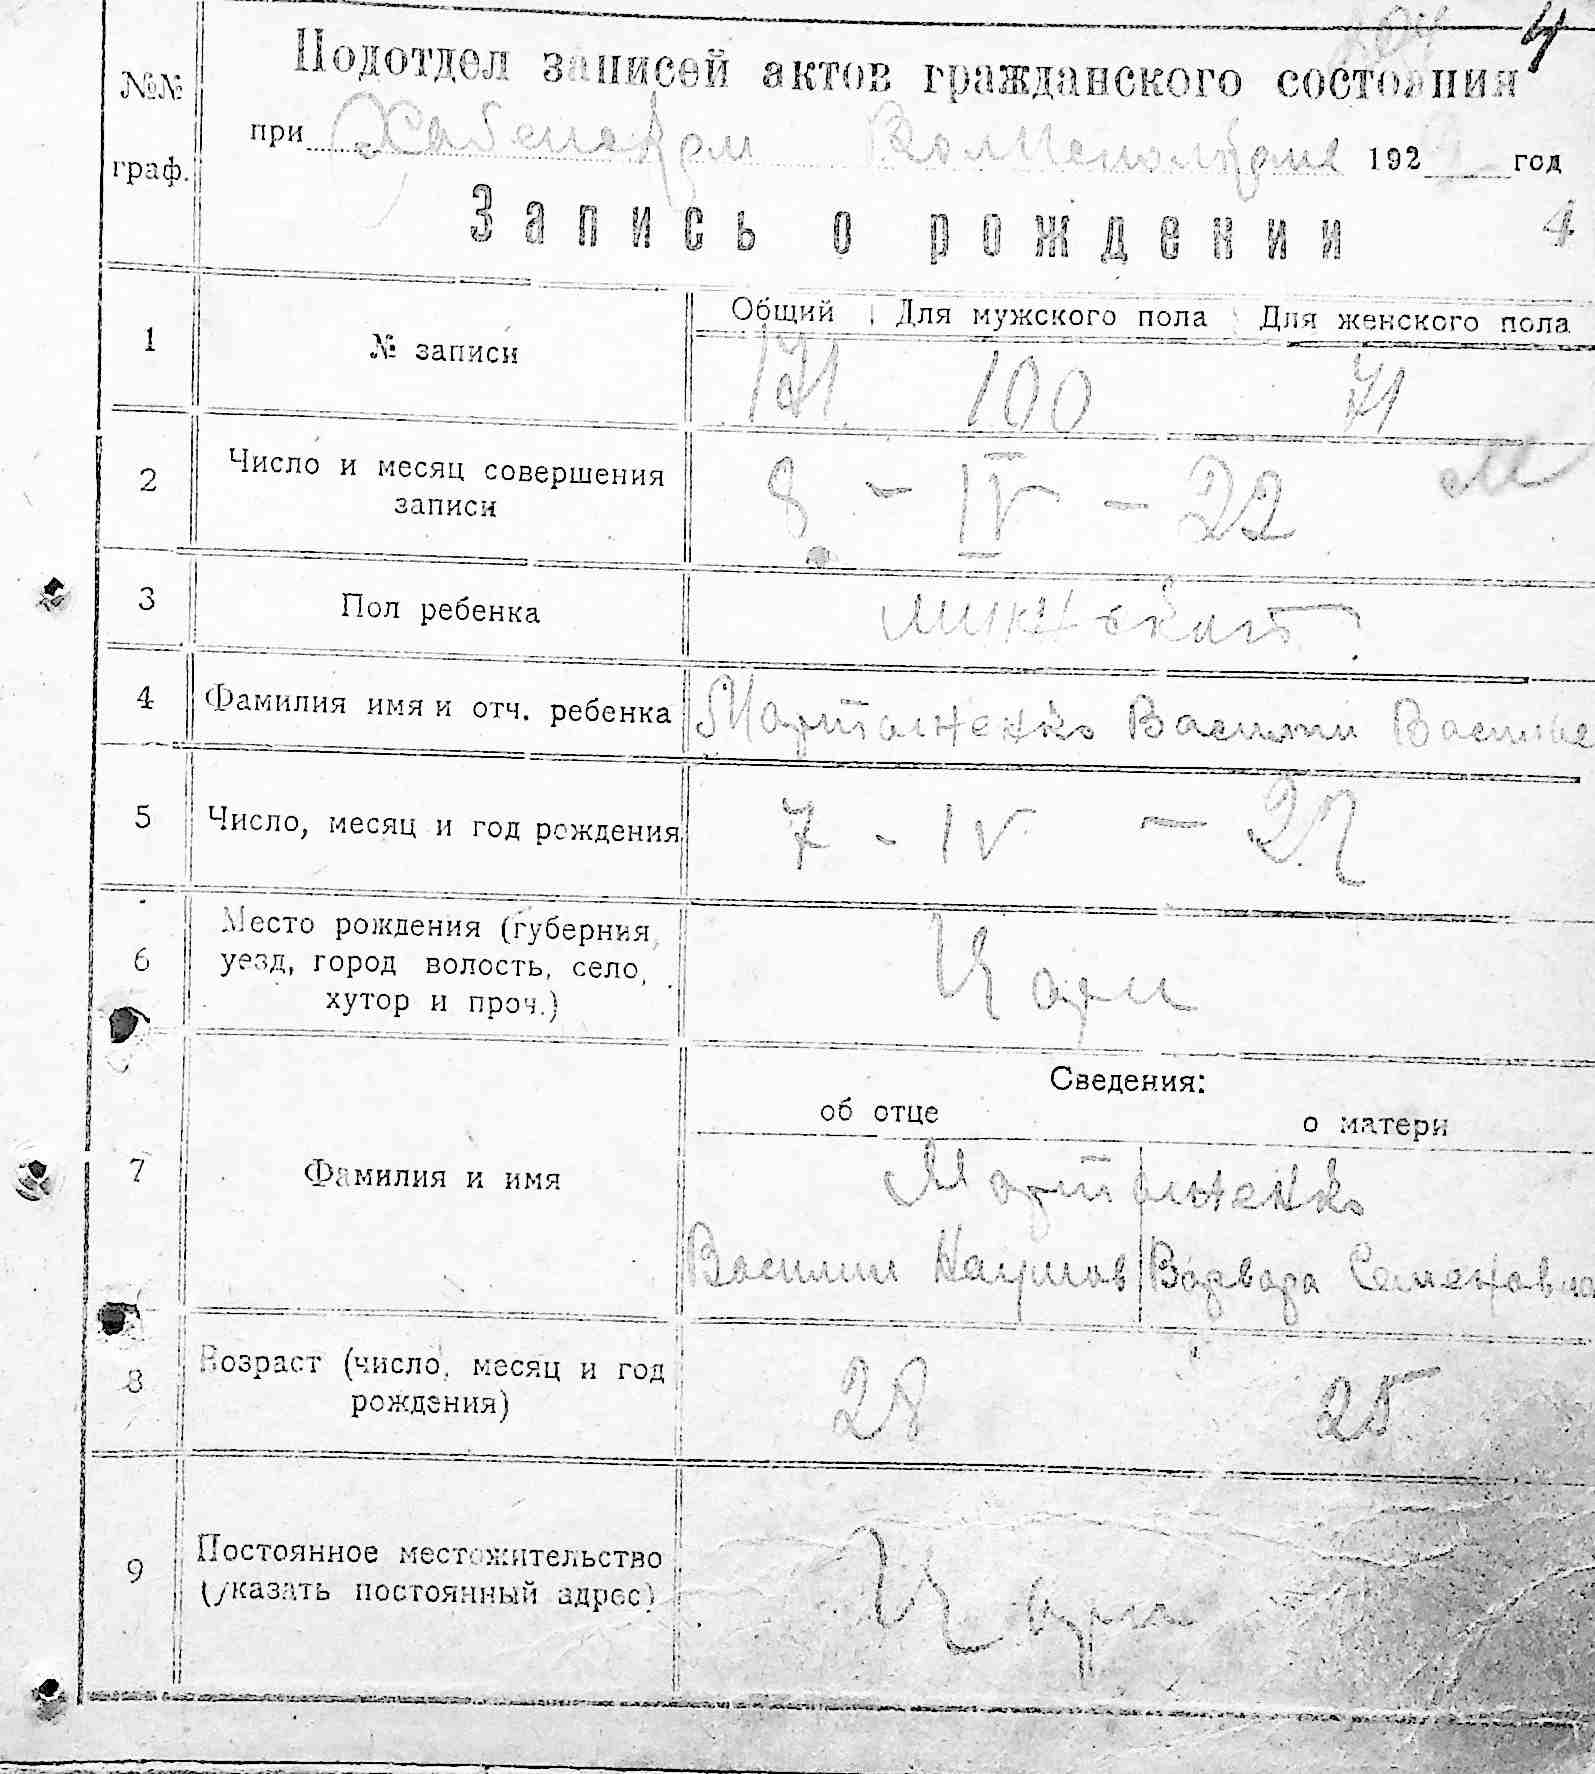 4
№№ граф.
Подотдел записей актов гражданского состояния
при Волисполкоме 192 год
Запись о рождении 4
Общий Для мужского пола Для женского пола
1 № записи 171 100 71
2 Число и месяц совершения
записи 8 - IV - 22 М
3 Пол ребенка
4 Фамилия имя и отч. ребенка Мартыненко Василий Василье
5 Число, месяц и год рождения 7 - IV - 22
6 Место рождения (губерния,
уезд, город волость, село,
хутор и проч.)
Сведения:
об отце о матери
7 Фамилия и имя Мартыненко
Василий Наумов Варвара Семеновна
8 Возраст (число, месяц и год
рождения) 28 25
9 Постоянное местожительство
(указать постоянный адрес)